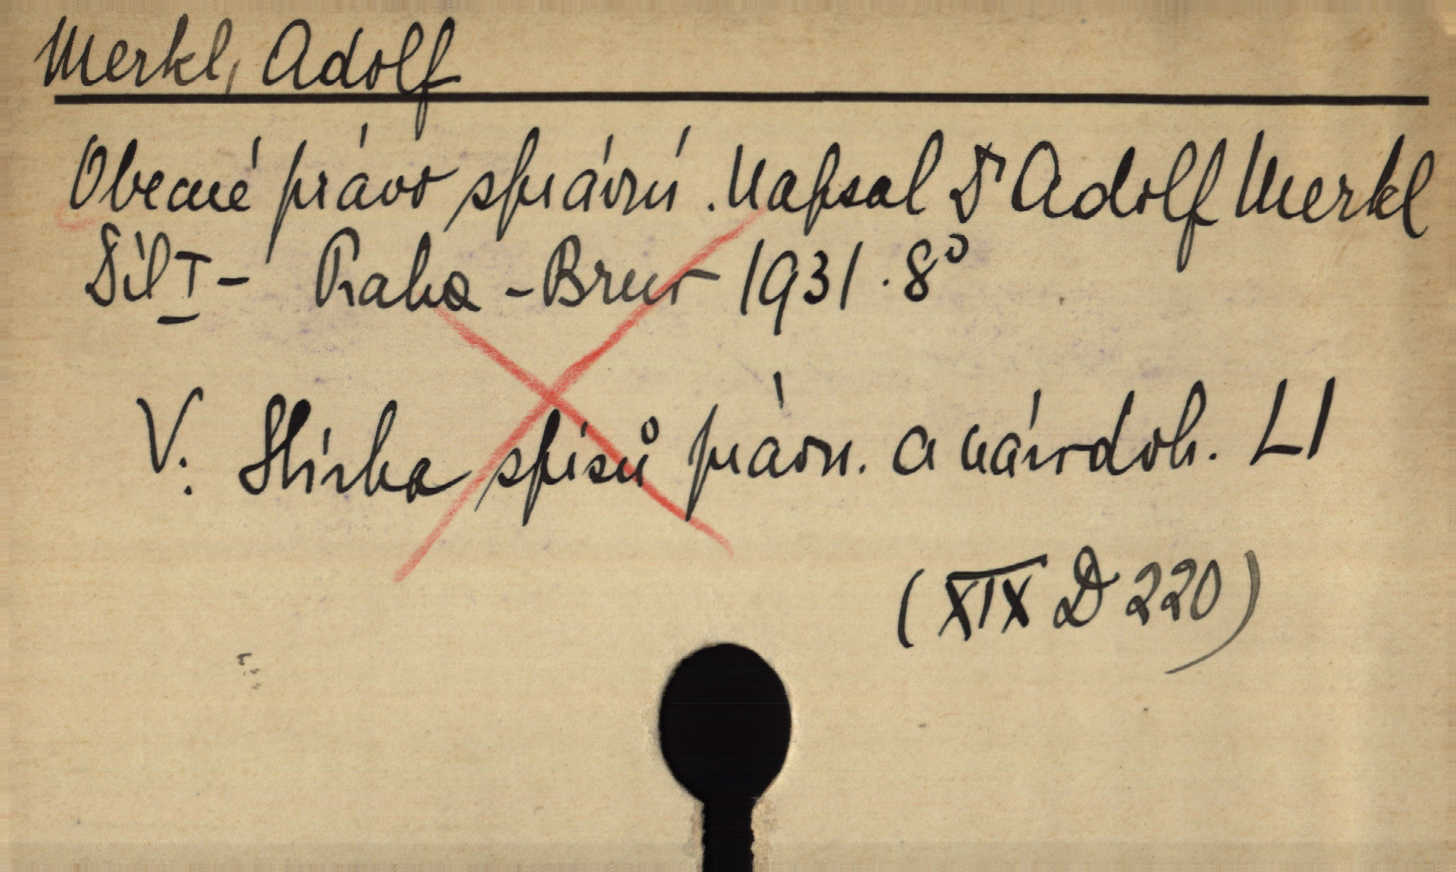 Merkl, Adolf
Obecné právo správní. Napsal Dr Adolf Merkl
Díl I - Praha - Brno 1931. 8°
V: Sbírka spisů právn. a národoh. LI
(XIX D 220)